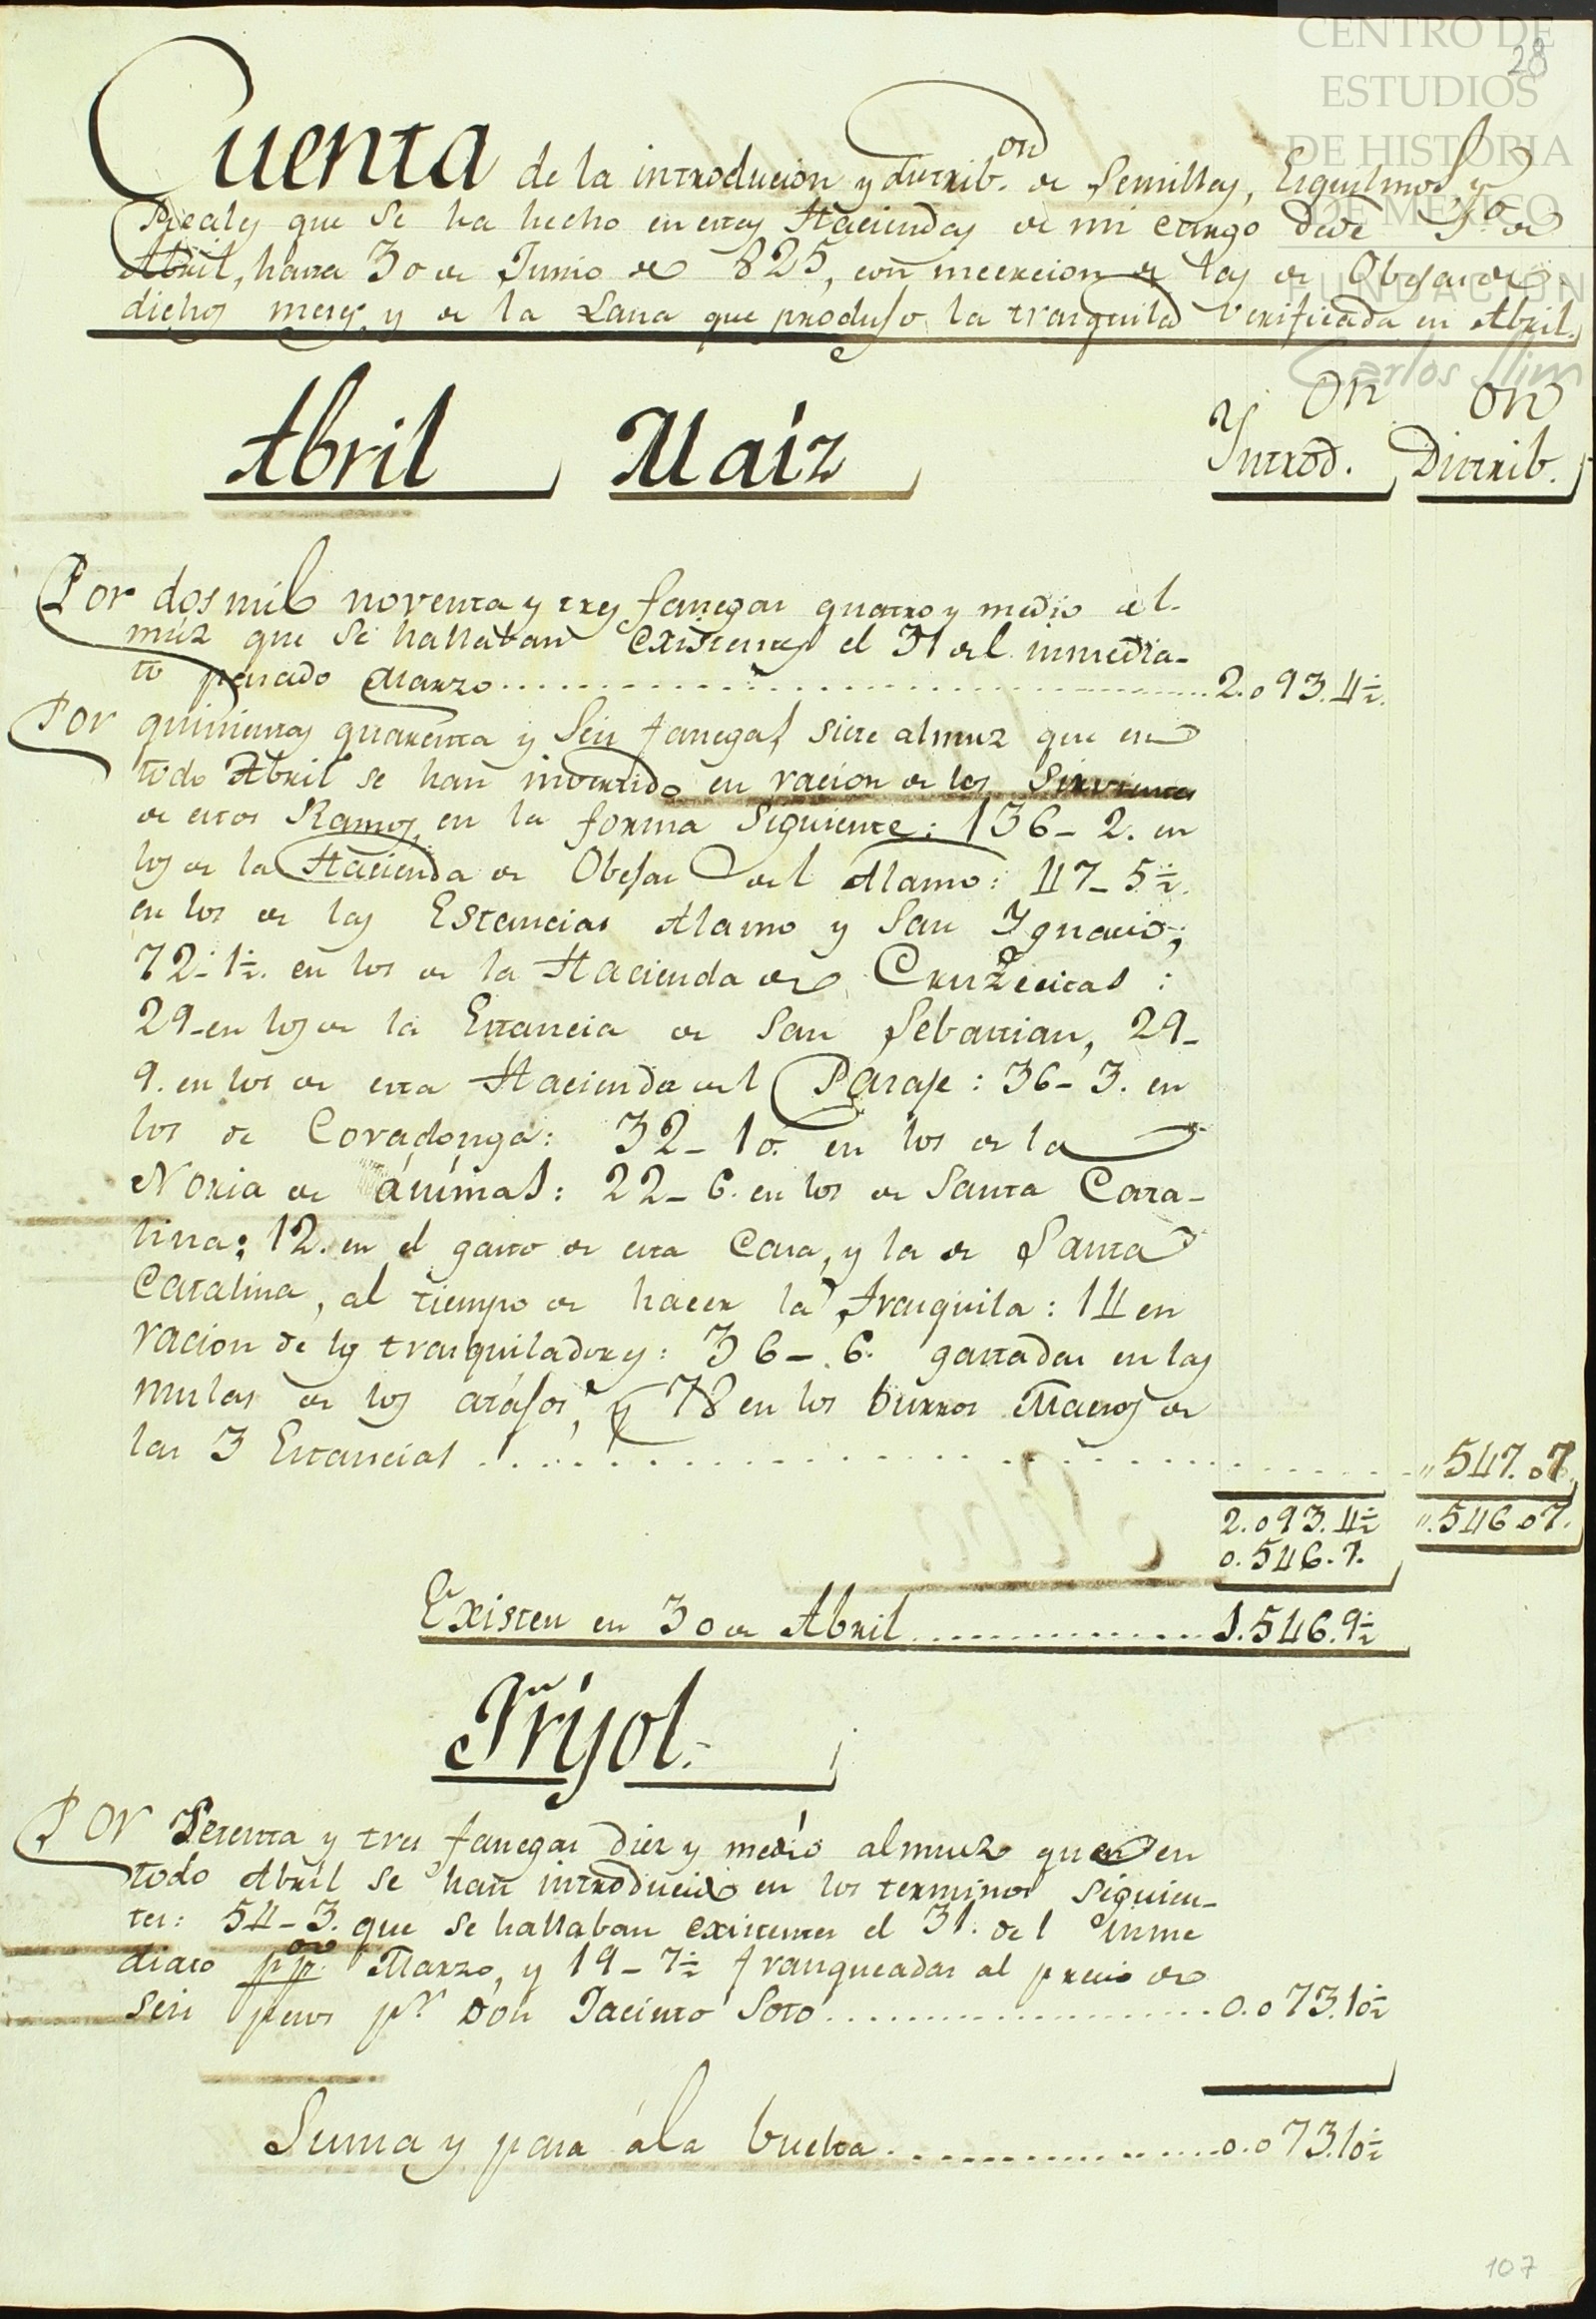 CENTRO DE
28
ESTUDIOS
DE HISTORIA
DE MEXICO
FUNDACION
Carlos Slim
Cuenta de la introducion y distrib.on de Semillas, Esquilmos y
Reales que se ha hecho en estas Haciendas de mi cargo desde 1o. de
Abril, hasta 30 de Junio de 825, con incercion de las de Obejas de
dichos meses, y de la Lana que produjo la trasquila verificada en Abril.
Abril, Maíz, Yntrod.on Distrib.on
Por dos mil noventa y tres fanegas quatro y medio al-
muz que se hallaban existentes el 31 del inmedia-
to pasado Marzo 2.093.4½.
Por quinientas quarenta y seis fanegas siete almuz que en
todo Abril se han invertido en racion de los Sirvientes
de estos Ramos, en la forma siguiente: 136-2. en
los de la Hacienda de Obejas del Alamo: 47-5½.
en los de las Estancias Alamo y San Ygnacio;
72-1½. en los de la Hacienda de Cruzecitas:
29-en los de la Estancia de San Sebastian, 29-
9. en los de esta Hacienda del Paraje: 36-3. en
los de Covadonga: 32-10. en los de la
Noria de ánimas: 22-6. en los de Santa Cata-
lina: 12. en el gasto de esta Casa, y la de Santa
Catalina, al tiempo de hacer la trasquila: 14 en
racion de los trasquiladores: 36-6. gastadas en las
mulas de los atajos, y 78 en los burros Maesos de
las 3 Estancias " 547.07.
2.093.4½ ".546.07.
0.546.7.
Existen en 30 de Abril 1.546.9½
Frijol.
Por Setenta y tres fanegas diez y medio almuz que en
todo Abril se han introducido en los terminos siguien-
tes: 54-3. que se hallaban existentes el 31. del inme
diato pp.do Marzo, y 19-7½ franqueadas al precio de
seis pesos pr. Don Jacinto Soto 0.073.10½
Suma y pasa á la buelta 0.073.10½
107